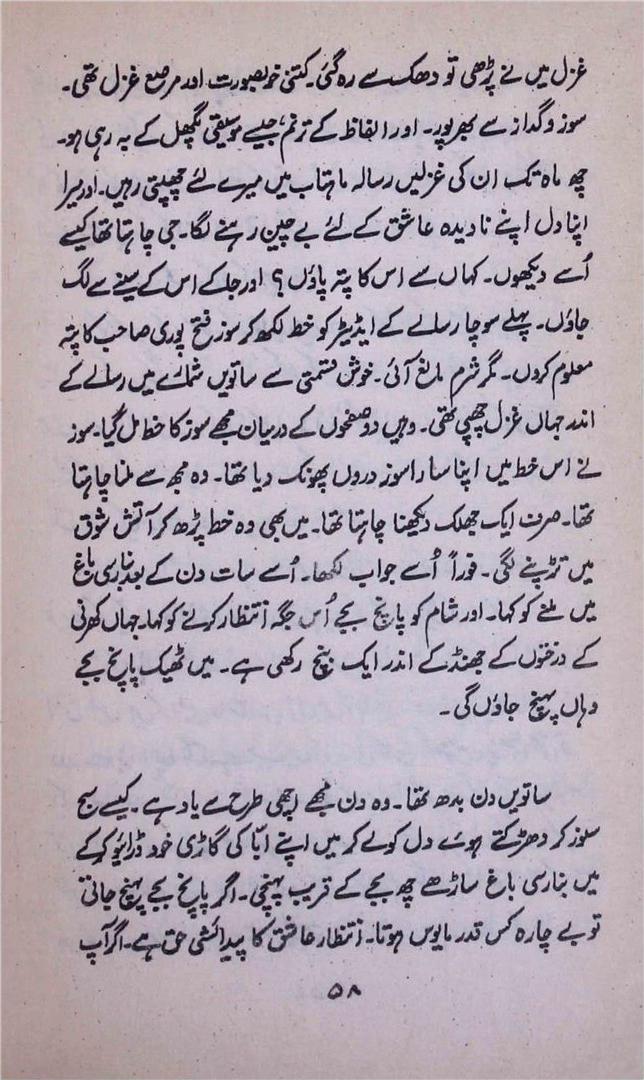 غزل میں نے پڑھی تو دھک سے رہ گئی۔ کتنی خوبصورت اور مرصع غزل تھی۔
سوز و گداز سے بھرپور۔ اور الفاظ کے ترنم، جیسے موسیقی پگھل کے بہ رہی ہو۔
چھ ماہ تک ان کی غزلیں رسالہ ماہتاب میں میرے لئے چھپتی رہیں۔ اور میرا
اپنا دل اپنے نادیدہ عاشق کے لئے بے چین رہنے لگا۔ جی چاہتا تھا کیسے
اُسے دیکھوں۔ کہاں سے اس کا پتہ پاؤں؟ اور جا کے اس کے سینے سے لگ
جاؤں۔ پہلے سوچا رسالے کے ایڈیٹر کو خط لکھ کر سوز فتح پوری صاحب کا پتہ
معلوم کروں۔ مگر شرم مانع آئی۔ خوش قسمتی سے ساتویں شمارے میں رسالے کے
اندر جہاں غزل چھپی تھی۔ وہیں دو صفحوں کے درمیان مجھے سوز کا خط مل گیا۔ سوز
نے اس خط میں اپنا سارا سوز دروں پھونک دیا تھا۔ وہ مجھ سے ملنا چاہتا
تھا۔ صرف ایک جھلک دیکھنا چاہتا تھا۔ میں بھی وہ خط پڑھ کر آتش شوق
میں تڑپنے لگی۔ فوراً اُسے جواب لکھا۔ اُسے سات دن کے بعد بنارسی باغ
میں ملنے کو کہا۔ اور شام کو پانچ بجے اُس جگہ انتظار کرنے کو کہا۔ جہاں کھرنی
کے درختوں کے جھنڈ کے اندر ایک بنچ رکھی ہے۔ میں ٹھیک پانچ بجے
وہاں پہنچ جاؤں گی۔
ساتویں دن بدھ تھا۔ وہ دن مجھے اچھی طرح سے یاد ہے۔ کیسے سج
سنور کر دھڑکتے ہوئے دل کو لے کر میں اپنے ابّا کی گاڑی خود ڈرائیو کر کے
میں بنارسی باغ ساڑھے چھ بجے کے قریب پہنچی۔ اگر پانچ بجے پہنچ جاتی
تو بے چارہ کس قدر مایوس ہوتا۔ انتظار عاشق کا پیدائشی حق ہے۔ اگر آپ
۵۸